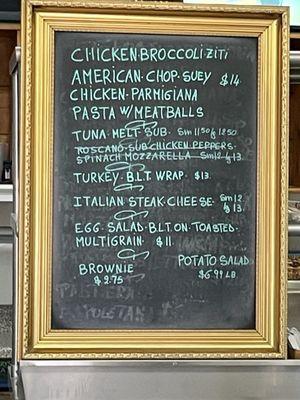 CHICKEN·BROCCOLI ZITI
AMERICAN·CHOP·SUEY $14
CHICKEN·PARMIGIANA
PASTA W/MEATBALLS
TUNA·MELT SUB· Sm 11.50 Lg 12.50
TOSCANO·SUB·CHICKEN·PEPPERS·
SPINACH MOZZARELLA Sm 12 Lg 13.
TURKEY·B.L.T. WRAP· $13.
ITALIAN·STEAK·CHEESE· Sm 12
Lg 13.
EGG·SALAD·B.L.T ON·TOASTED·
MULTIGRAIN· $11.
BROWNIE
$2.75
POTATO SALAD
$6.99 LB